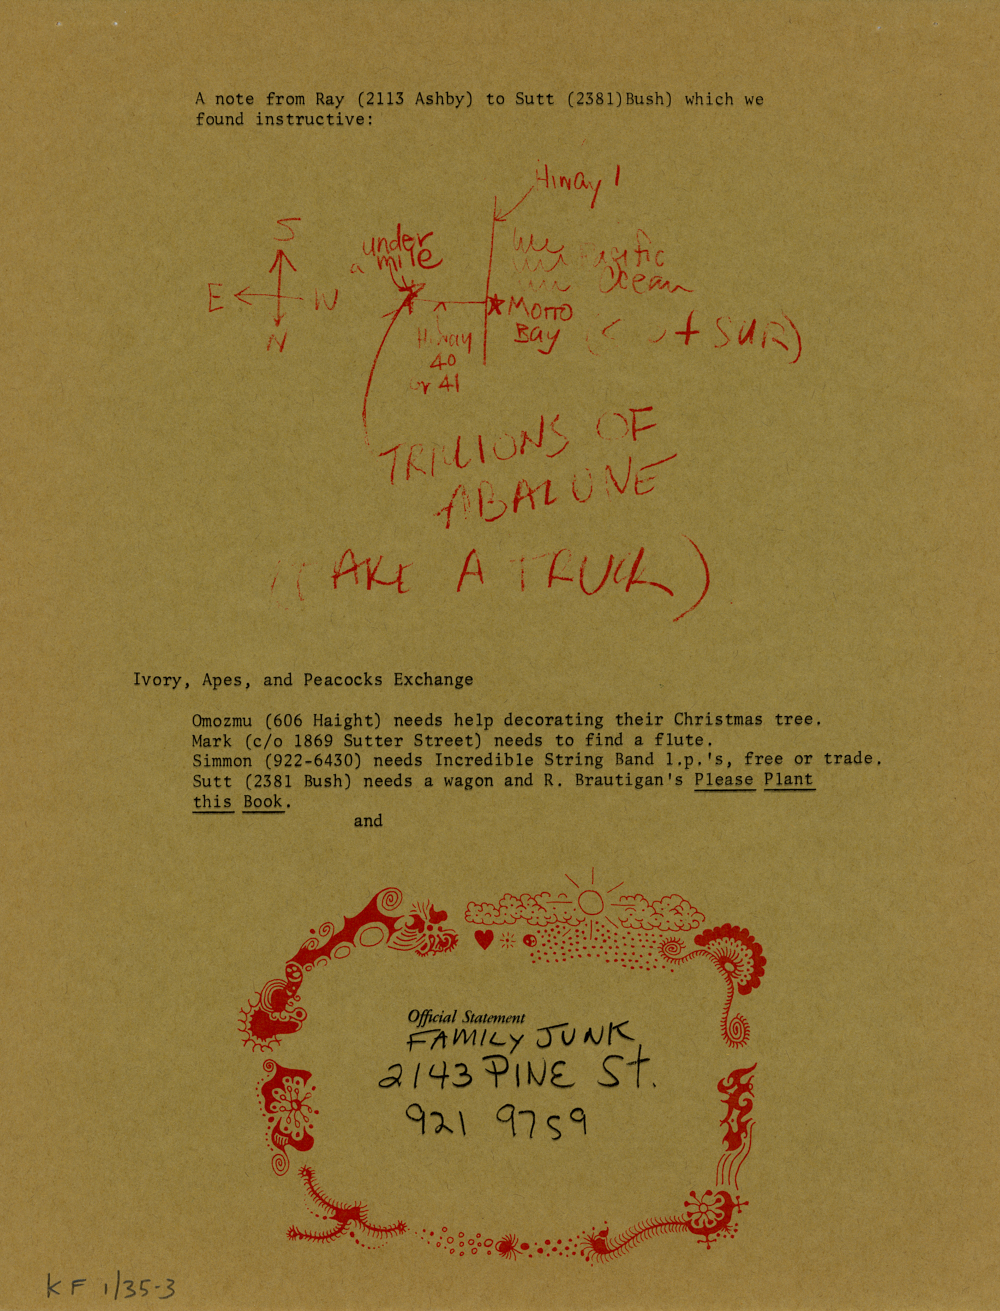 A note from Ray (2113 Ashby) to Sutt (2381)Bush) which we
found instructive:
Hiway 1
S
under
a mile
Pacific
Ocean
E
W
Morro
Bay
SUR)
N
Hiway
40
or 41
TRILLIONS OF
ABALONE
(TAKE A TRUCK)
Ivory, Apes, and Peacocks Exchange
Omozmu (606 Haight) needs help decorating their Christmas tree.
Mark (c/o 1869 Sutter Street) needs to find a flute.
Simmon (922-6430) needs Incredible String Band l.p.'s, free or trade.
Sutt (2381 Bush) needs a wagon and R. Brautigan's Please Plant
this Book.
and
Official Statement
FAMILY JUNK
2143 PINE St.
921 9759
KF 1/35-3